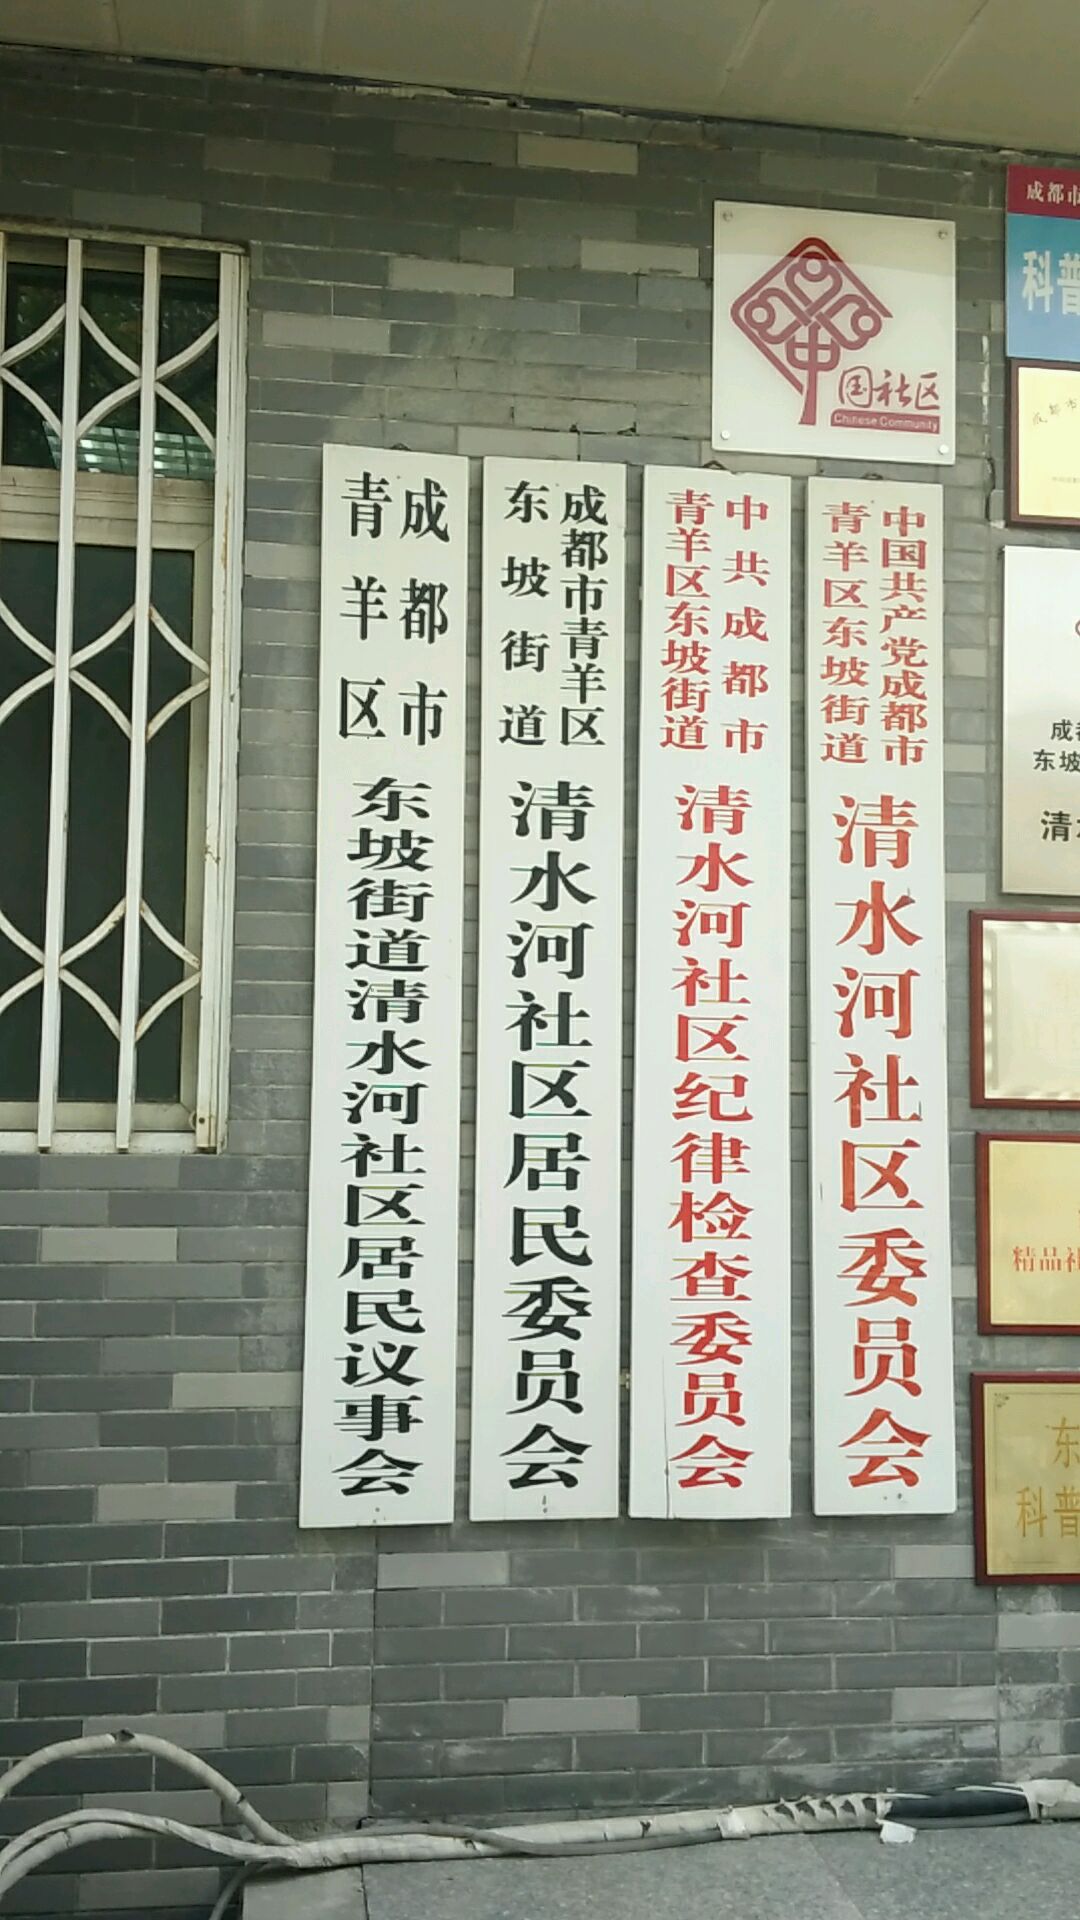 中国社区
Chinese Community
成都市
青羊区
东坡街道清水河社区居民议事会
成都市青羊区
东坡街道
清水河社区居民委员会
中共成都市
青羊区东坡街道
清水河社区纪律检查委员会
中国共产党成都市
青羊区东坡街道
清水河社区委员会
成都市
科普
成都市
成都
东坡
清水
精品社
东
科普